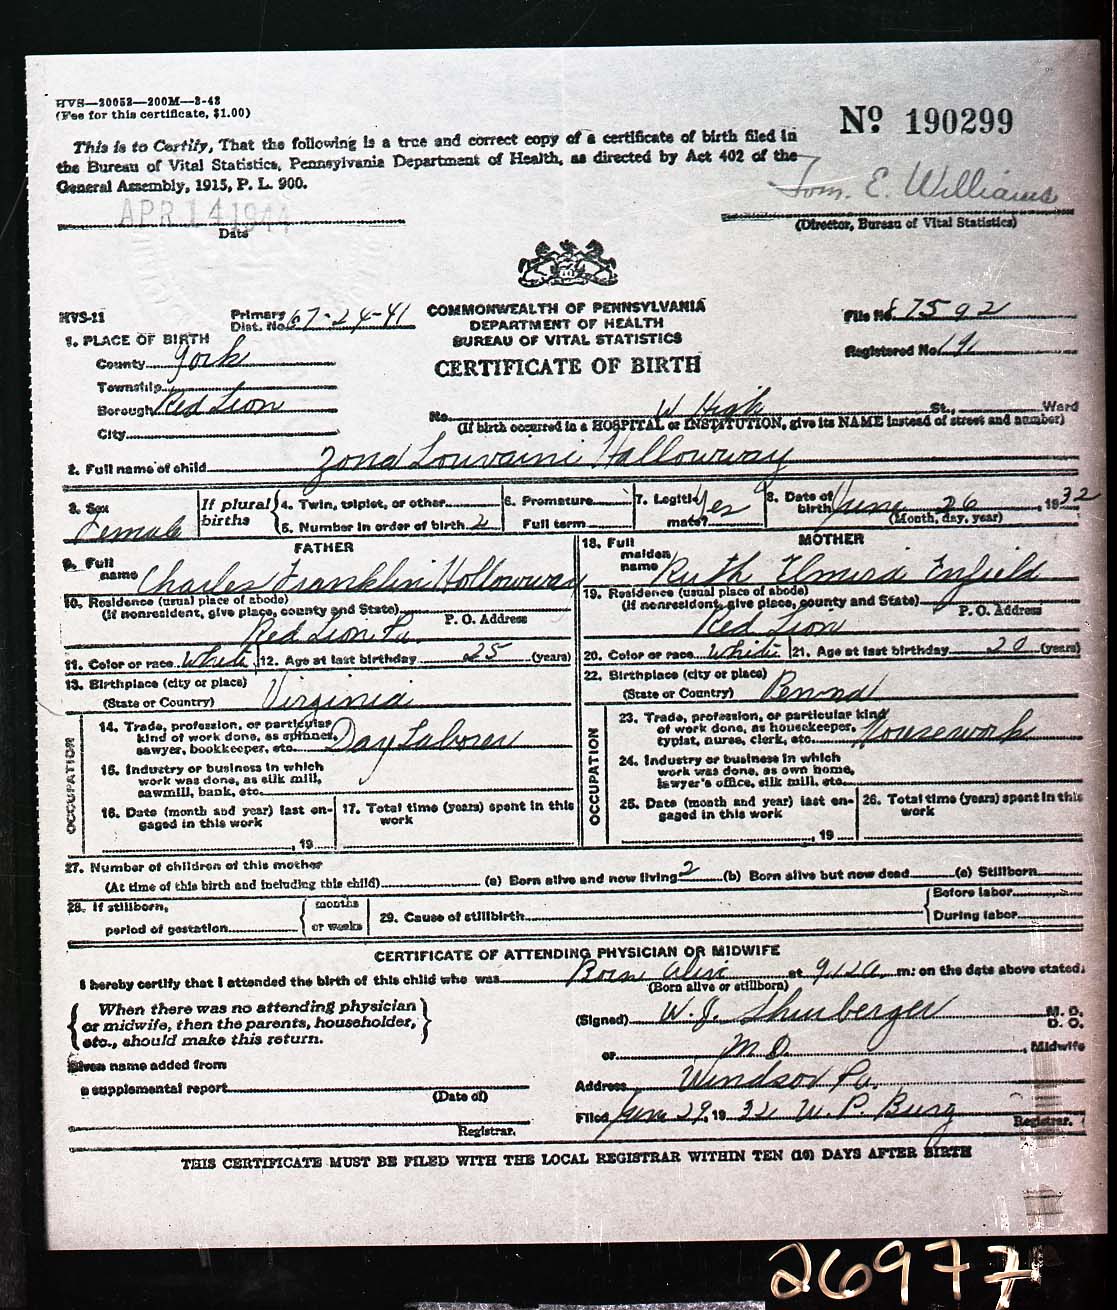 HVS—20052—200M—3-43
(Fee for this certificate, $1.00)
Nº 190299
This is to Certify, That the following is a true and correct copy of a certificate of birth filed in
the Bureau of Vital Statistics, Pennsylvania Department of Health, as directed by Act 402 of the
General Assembly, 1915, P. L. 900.
Tom. E. Williams
APR 14 1944
Date
(Director, Bureau of Vital Statistics)
HVS-11
Primary Dist. No. 67-24-41
COMMONWEALTH OF PENNSYLVANIA
DEPARTMENT OF HEALTH
BUREAU OF VITAL STATISTICS
CERTIFICATE OF BIRTH
File No. 87592
Registered No. 191
1. PLACE OF BIRTH
County York
Township
Borough Red Lion
City
No. W High St., Ward
(If birth occurred in a HOSPITAL or INSTITUTION, give its NAME instead of street and number)
2. Full name of child Zona Louvaine Hallowway
3. Sex Female
If plural births
4. Twin, triplet, or other
5. Number in order of birth 2
6. Premature
Full term
7. Legitimate? Yes
8. Date of birth June 26, 1932
(Month, day, year)
FATHER
9. Full name Charles Franklin Holloway
10. Residence (usual place of abode)
(If nonresident, give place, county and State)
P. O. Address
Red Lion Pa.
11. Color or race White
12. Age at last birthday 25 (years)
13. Birthplace (city or place)
(State or Country) Virginia
OCCUPATION
14. Trade, profession, or particular
kind of work done, as spinner,
sawyer, bookkeeper, etc. Day Laborer
15. Industry or business in which
work was done, as silk mill,
sawmill, bank, etc.
16. Date (month and year) last en-
gaged in this work
, 19
17. Total time (years) spent in this
work
MOTHER
18. Full maiden name Ruth Elmira Enfield
19. Residence (usual place of abode)
(If nonresident, give place, county and State)
P. O. Address
Red Lion
20. Color or race White
21. Age at last birthday 20 (years)
22. Birthplace (city or place)
(State or Country) Penna
OCCUPATION
23. Trade, profession, or particular kind
of work done, as housekeeper,
typist, nurse, clerk, etc. Housework
24. Industry or business in which
work was done, as own home,
lawyer's office, silk mill, etc.
25. Date (month and year) last en-
gaged in this work
, 19
26. Total time (years) spent in this
work
27. Number of children of this mother
(At time of this birth and including this child) (a) Born alive and now living 2 (b) Born alive but now dead (c) Stillborn
28. If stillborn,
period of gestation
months
or weeks
29. Cause of stillbirth
Before labor
During labor
CERTIFICATE OF ATTENDING PHYSICIAN OR MIDWIFE
I hereby certify that I attended the birth of this child who was Born Alive at 9:12 a. m. on the date above stated.
(Born alive or stillborn)
When there was no attending physician
or midwife, then the parents, householder,
etc., should make this return.
(Signed) W. J. Shenberger M. D.
D. O.
or M D. , Midwife
Given name added from
a supplemental report
(Date of)
Registrar.
Address Windsor Pa.
Filed June 29, 1932 W. P. Burg
Registrar.
THIS CERTIFICATE MUST BE FILED WITH THE LOCAL REGISTRAR WITHIN TEN (10) DAYS AFTER BIRTH
26977